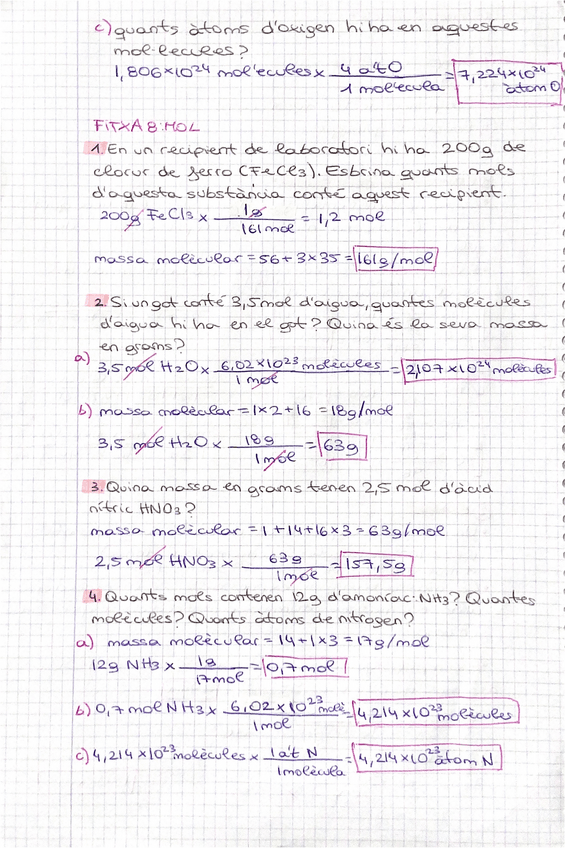 c) quants àtoms d'oxigen hi ha en aquestes
mol·lecules?
1,806×10²⁴ molècules × 4 àt O / 1 molècula = 7,224×10²⁴ àtom O
FITXA 8: MOL
1. En un recipient de laboratori hi ha 200g de
clorur de ferro (FeCl3). Esbrina quants mols
d'aquesta substància conté aquest recipient.
200g FeCl3 × 1g / 161 mol = 1,2 mol
massa molècular = 56 + 3×35 = 161g/mol
2. Si un got conté 3,5mol d'aigua, quantes molècules
d'aigua hi ha en el got? Quina és la seva massa
en grams?
a) 3,5 mol H2O × 6,02×10²³ molècules / 1 mol = 2,107×10²⁴ molècules
b) massa molècular = 1×2+16 = 18g/mol
3,5 mol H2O × 18g / 1 mol = 63g
3. Quina massa en grams tenen 2,5 mol d'àcid
nítric HNO3?
massa molècular = 1+14+16×3 = 63g/mol
2,5 mol HNO3 × 63g / 1 mol = 157,5g
4. Quants mols contenen 12g d'amoníac: NH3? Quantes
molècules? Quants àtoms de nitrogen?
a) massa molècular = 14+1×3 = 17g/mol
12g NH3 × 1g / 17mol = 0,7 mol
b) 0,7 mol NH3 × 6,02×10²³ molè / 1mol = 4,214×10²³ molècules
c) 4,214×10²³ molècules × 1 àt N / 1 molècula = 4,214×10²³ àtom N